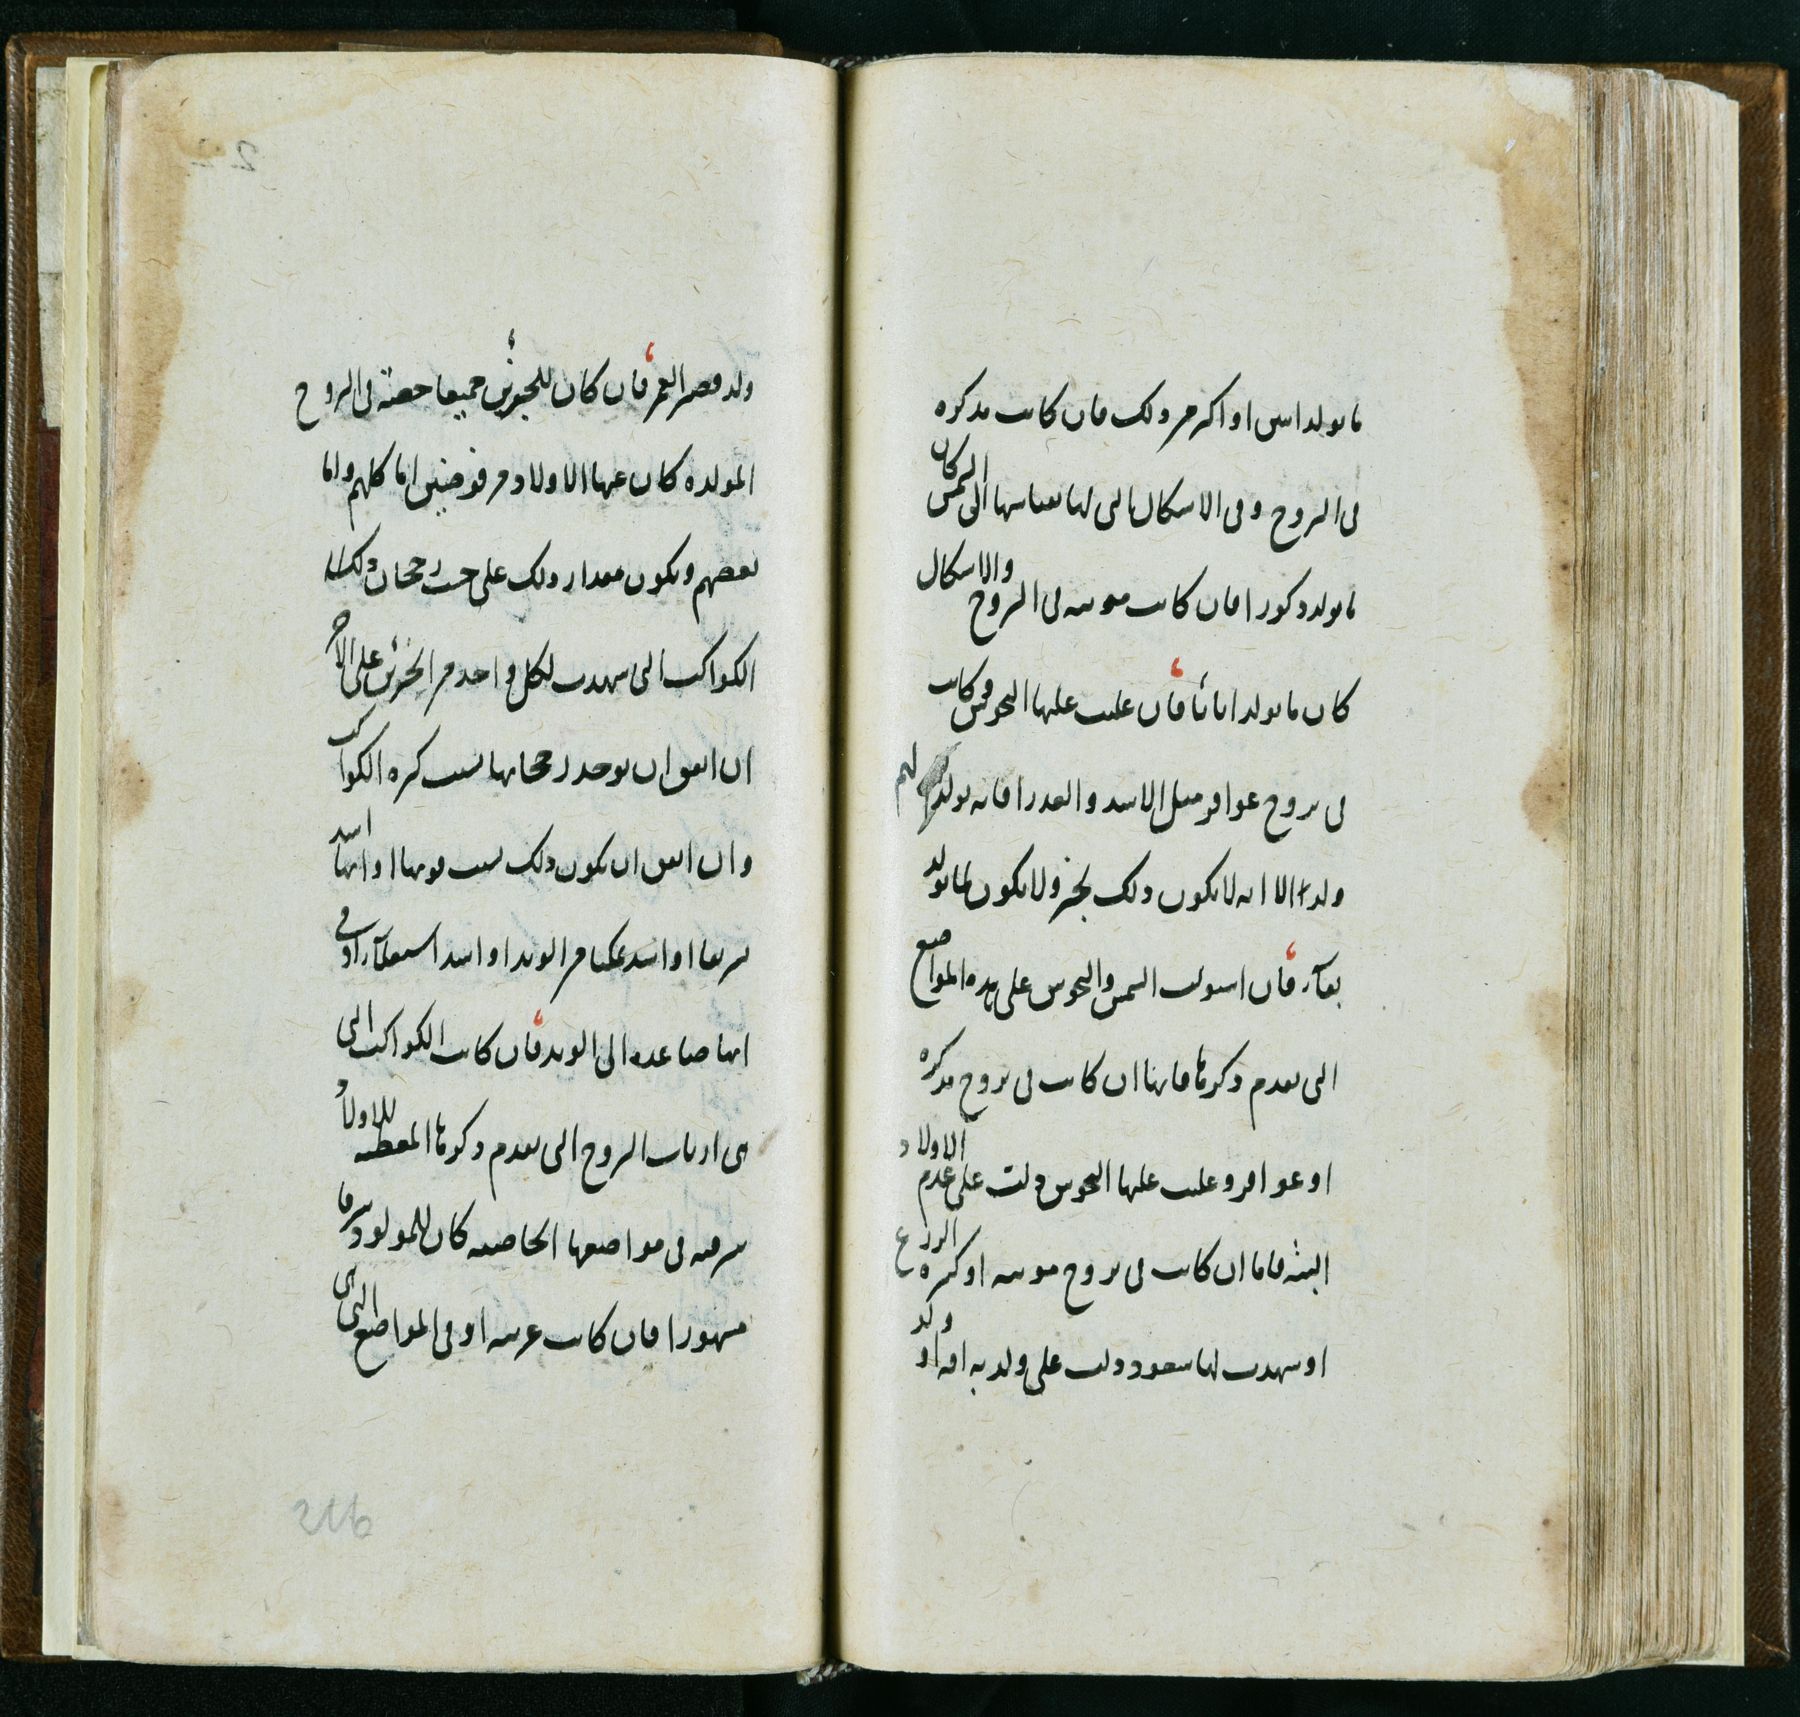 ما يولد اثنين او اكثر من ذلك فان كانت مذكرة
في البروج وفي الاشكال التي لها بقياسها الى الشمس كان
ما يولد ذكورا فان كانت مونثه في البروج والاشكال
كان ما يولد اناثا فان غلبت عليها النحوس وكانت
في بروج عواقر مثل الاسد والعذرا فانه يولد لهم
ولد الا انه لا يكون ذلك بخير ولا يكون لما يولد
بقآء فان استولت الشمس والنحوس على هذه المواضع
التي تقدم ذكرها فانها ان كانت في بروج مذكره
او عواقر وغلبت عليها النحوس دلت على عدم الاولاد
البتة فاما ان كانت في بروج مونثه او كثيرة الزرع
او شهدت لها سعود دلت على ولد به افه او ولد
ولد قصير العمر فان كان للحيزين جميعا حصة في البروج
المولده كان عنها الاولاد من فوضيين اما كلهم واما
بعضهم ويكون مقدار ذلك على حسب رجحان تلك
الكواكب التي شهدت لكل واحد من الحيزين على الاخر
ان اتفق ان يوجد رجحانها بسبب كثرة الكواكب
وان اتفق ان يكون ذلك بسبب قوتها او انها اشد
شرقيا او اشد تمكنا من الوتد او اشد استعلآء او في
انها صاعده الى الوتد فان كانت الكواكب التي
هي ارباب البروج التي تقدم ذكرها المعطيه للاولاد
شرقيه في مواضعها الخاصيه كان للمولود شرفا
مشهورا فان كانت غربيه او في المواضع التي هي
216